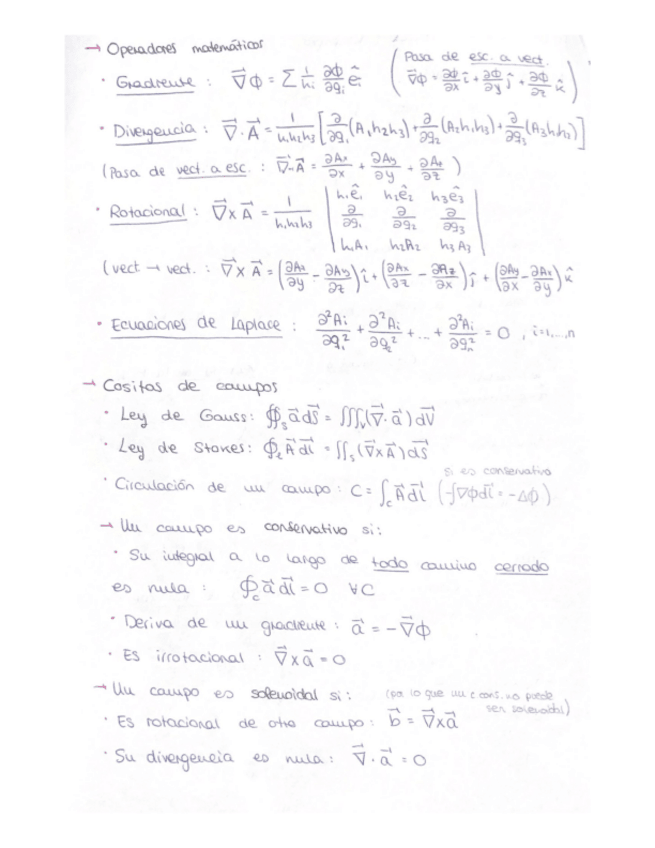 → Operadores matemáticos
· Gradiente : ∇⃗ϕ = Σ 1/hᵢ ∂ϕ/∂qᵢ êᵢ (Pasa de esc. a vect. ∇⃗ϕ = ∂ϕ/∂x î + ∂ϕ/∂y ĵ + ∂ϕ/∂z k̂)
· Divergencia : ∇⃗·A⃗ = 1/(h₁h₂h₃) [∂/∂q₁ (A₁h₂h₃) + ∂/∂q₂ (A₂h₁h₃) + ∂/∂q₃ (A₃h₁h₂)]
(Pasa de vect. a esc. : ∇⃗·A⃗ = ∂Ax/∂x + ∂Ay/∂y + ∂Az/∂z )
· Rotacional : ∇⃗x A⃗ = 1/(h₁h₂h₃) | h₁ê₁ h₂ê₂ h₃ê₃ |
| ∂/∂q₁ ∂/∂q₂ ∂/∂q₃ |
| h₁A₁ h₂A₂ h₃A₃ |
(vect → vect. : ∇⃗ x A⃗ = (∂Az/∂y - ∂Ay/∂z) î + (∂Ax/∂z - ∂Az/∂x) ĵ + (∂Ay/∂x - ∂Ax/∂y) k̂
· Ecuaciones de Laplace : ∂²Aᵢ/∂q₁² + ∂²Aᵢ/∂q₂² + ... + ∂²Aᵢ/∂qₙ² = 0 , i=1,...,n
→ Cositas de campos
· Ley de Gauss: ∯ₛ a⃗ dS⃗ = ∭ᵥ (∇⃗ · a⃗ ) dV⃗
· Ley de Stokes: ∮ₗ A⃗ dl⃗ = ∬ₛ (∇⃗xA⃗) dS⃗
si es conservativo
· Circulación de un campo : C = ∫c A⃗ dl⃗ (-∫∇ϕdl⃗ = -Δϕ )
→ Un campo es conservativo si:
· Su integral a lo largo de todo camino cerrado
es nula : ∮c a⃗ dl⃗ = 0 ∀C
· Deriva de un gradiente : a⃗ = -∇⃗ϕ
· Es irrotacional : ∇⃗ x a⃗ = 0
→ Un campo es solenoidal si : (por lo que un c cons. no puede
ser solenoidal)
· Es rotacional de otro campo : b⃗ = ∇⃗xa⃗
· Su divergencia es nula : ∇⃗ · a⃗ = 0